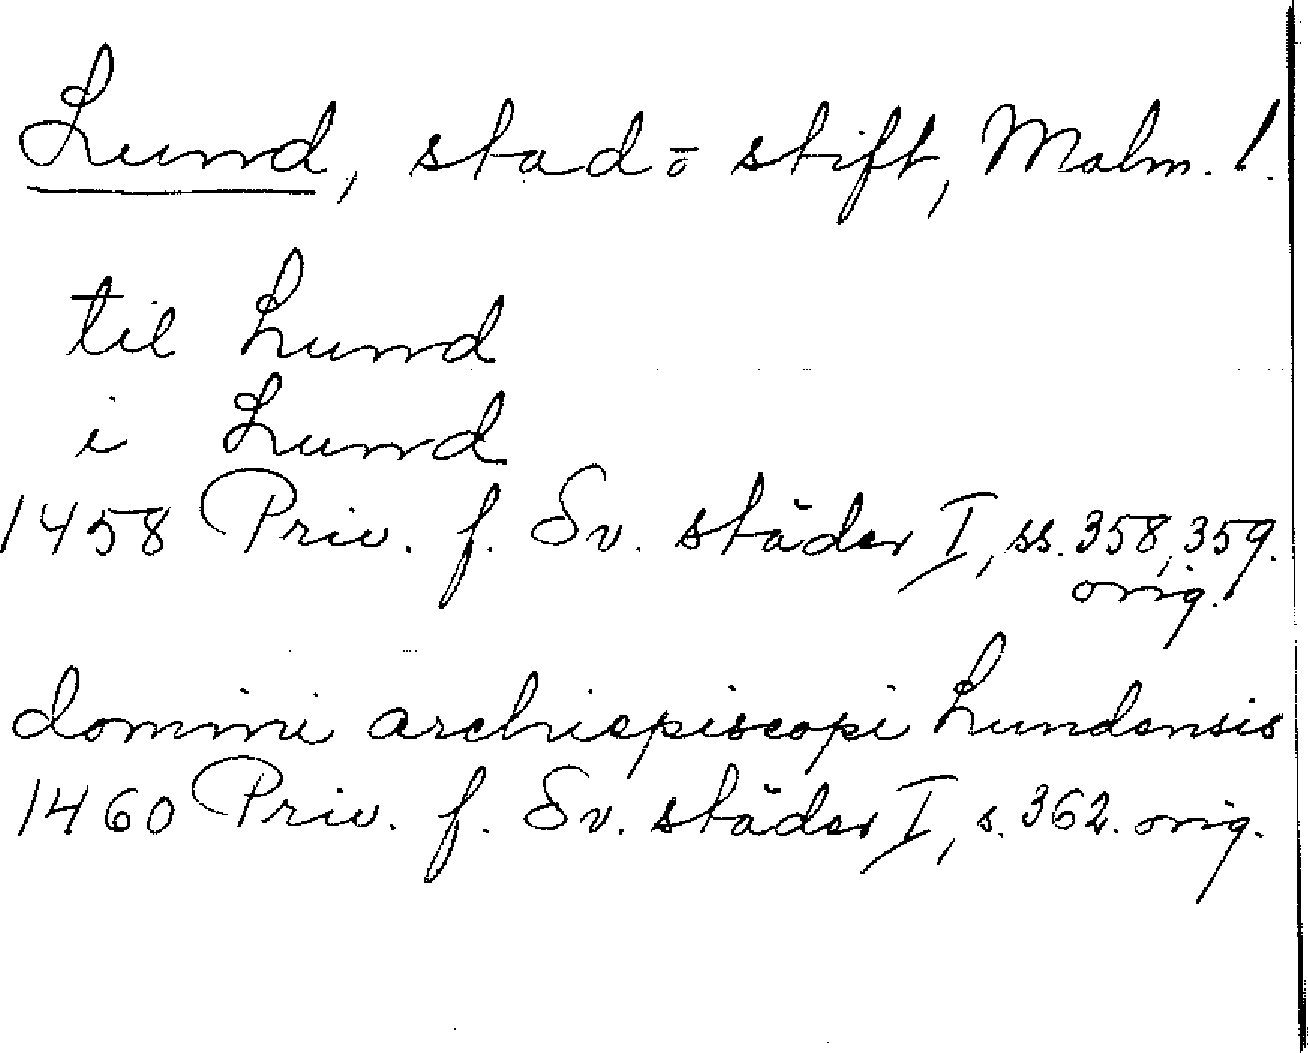 Lund, stad ō stift, Malm. l.
til Lund
i Lund
1458 Priv. f. Sv. städer I, ss. 358, 359.
orig.
domini archiepiscopi Lundensis
1460 Priv. f. Sv. städer I, s. 362. orig.